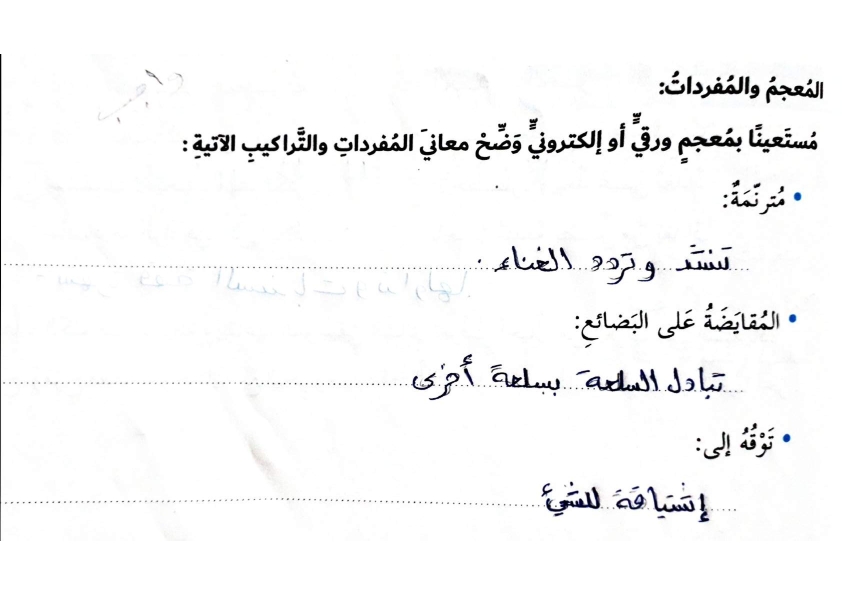 المُعجمُ والمُفرداتُ:
مُستَعينًا بمُعجمٍ ورقيٍّ أو إلكترونيٍّ وَضِّحْ معانيَ المُفرداتِ والتَّراكيبِ الآتيةِ:
• مُترنّمَةٌ:
تنشد وتردد الغناء.
• المُقايَضَةُ عَلى البَضائعِ:
تبادل السلعة بسلعةً أخرى
• تَوْقُهُ إلى:
إشتياقه للشيئ